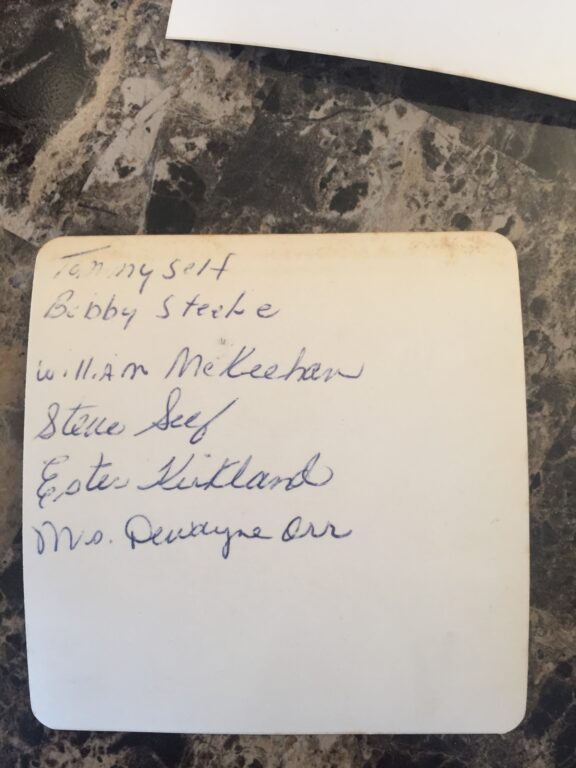 Tommy Self
Bobby Steele
William McKeehan
Steve Self
Ester Kirkland
Mrs. Dewayne Orr